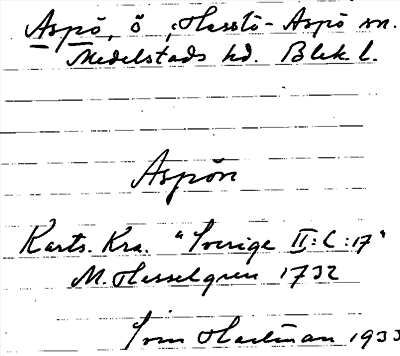 Aspö, ö, Hasslö-Aspö sn.
Medelstads hd. Blek. l.
Aspön
Kart s. Kra. "Sverige II:C:17"
M. Hesselgren 1732
Hartman 1933